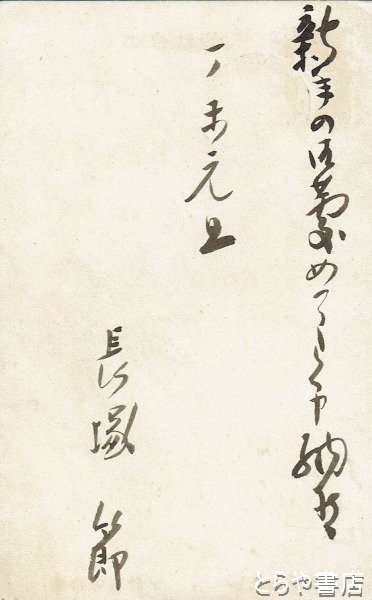 新年の御慶めてたく申納候
丁未元旦
長塚 節
とらや書店